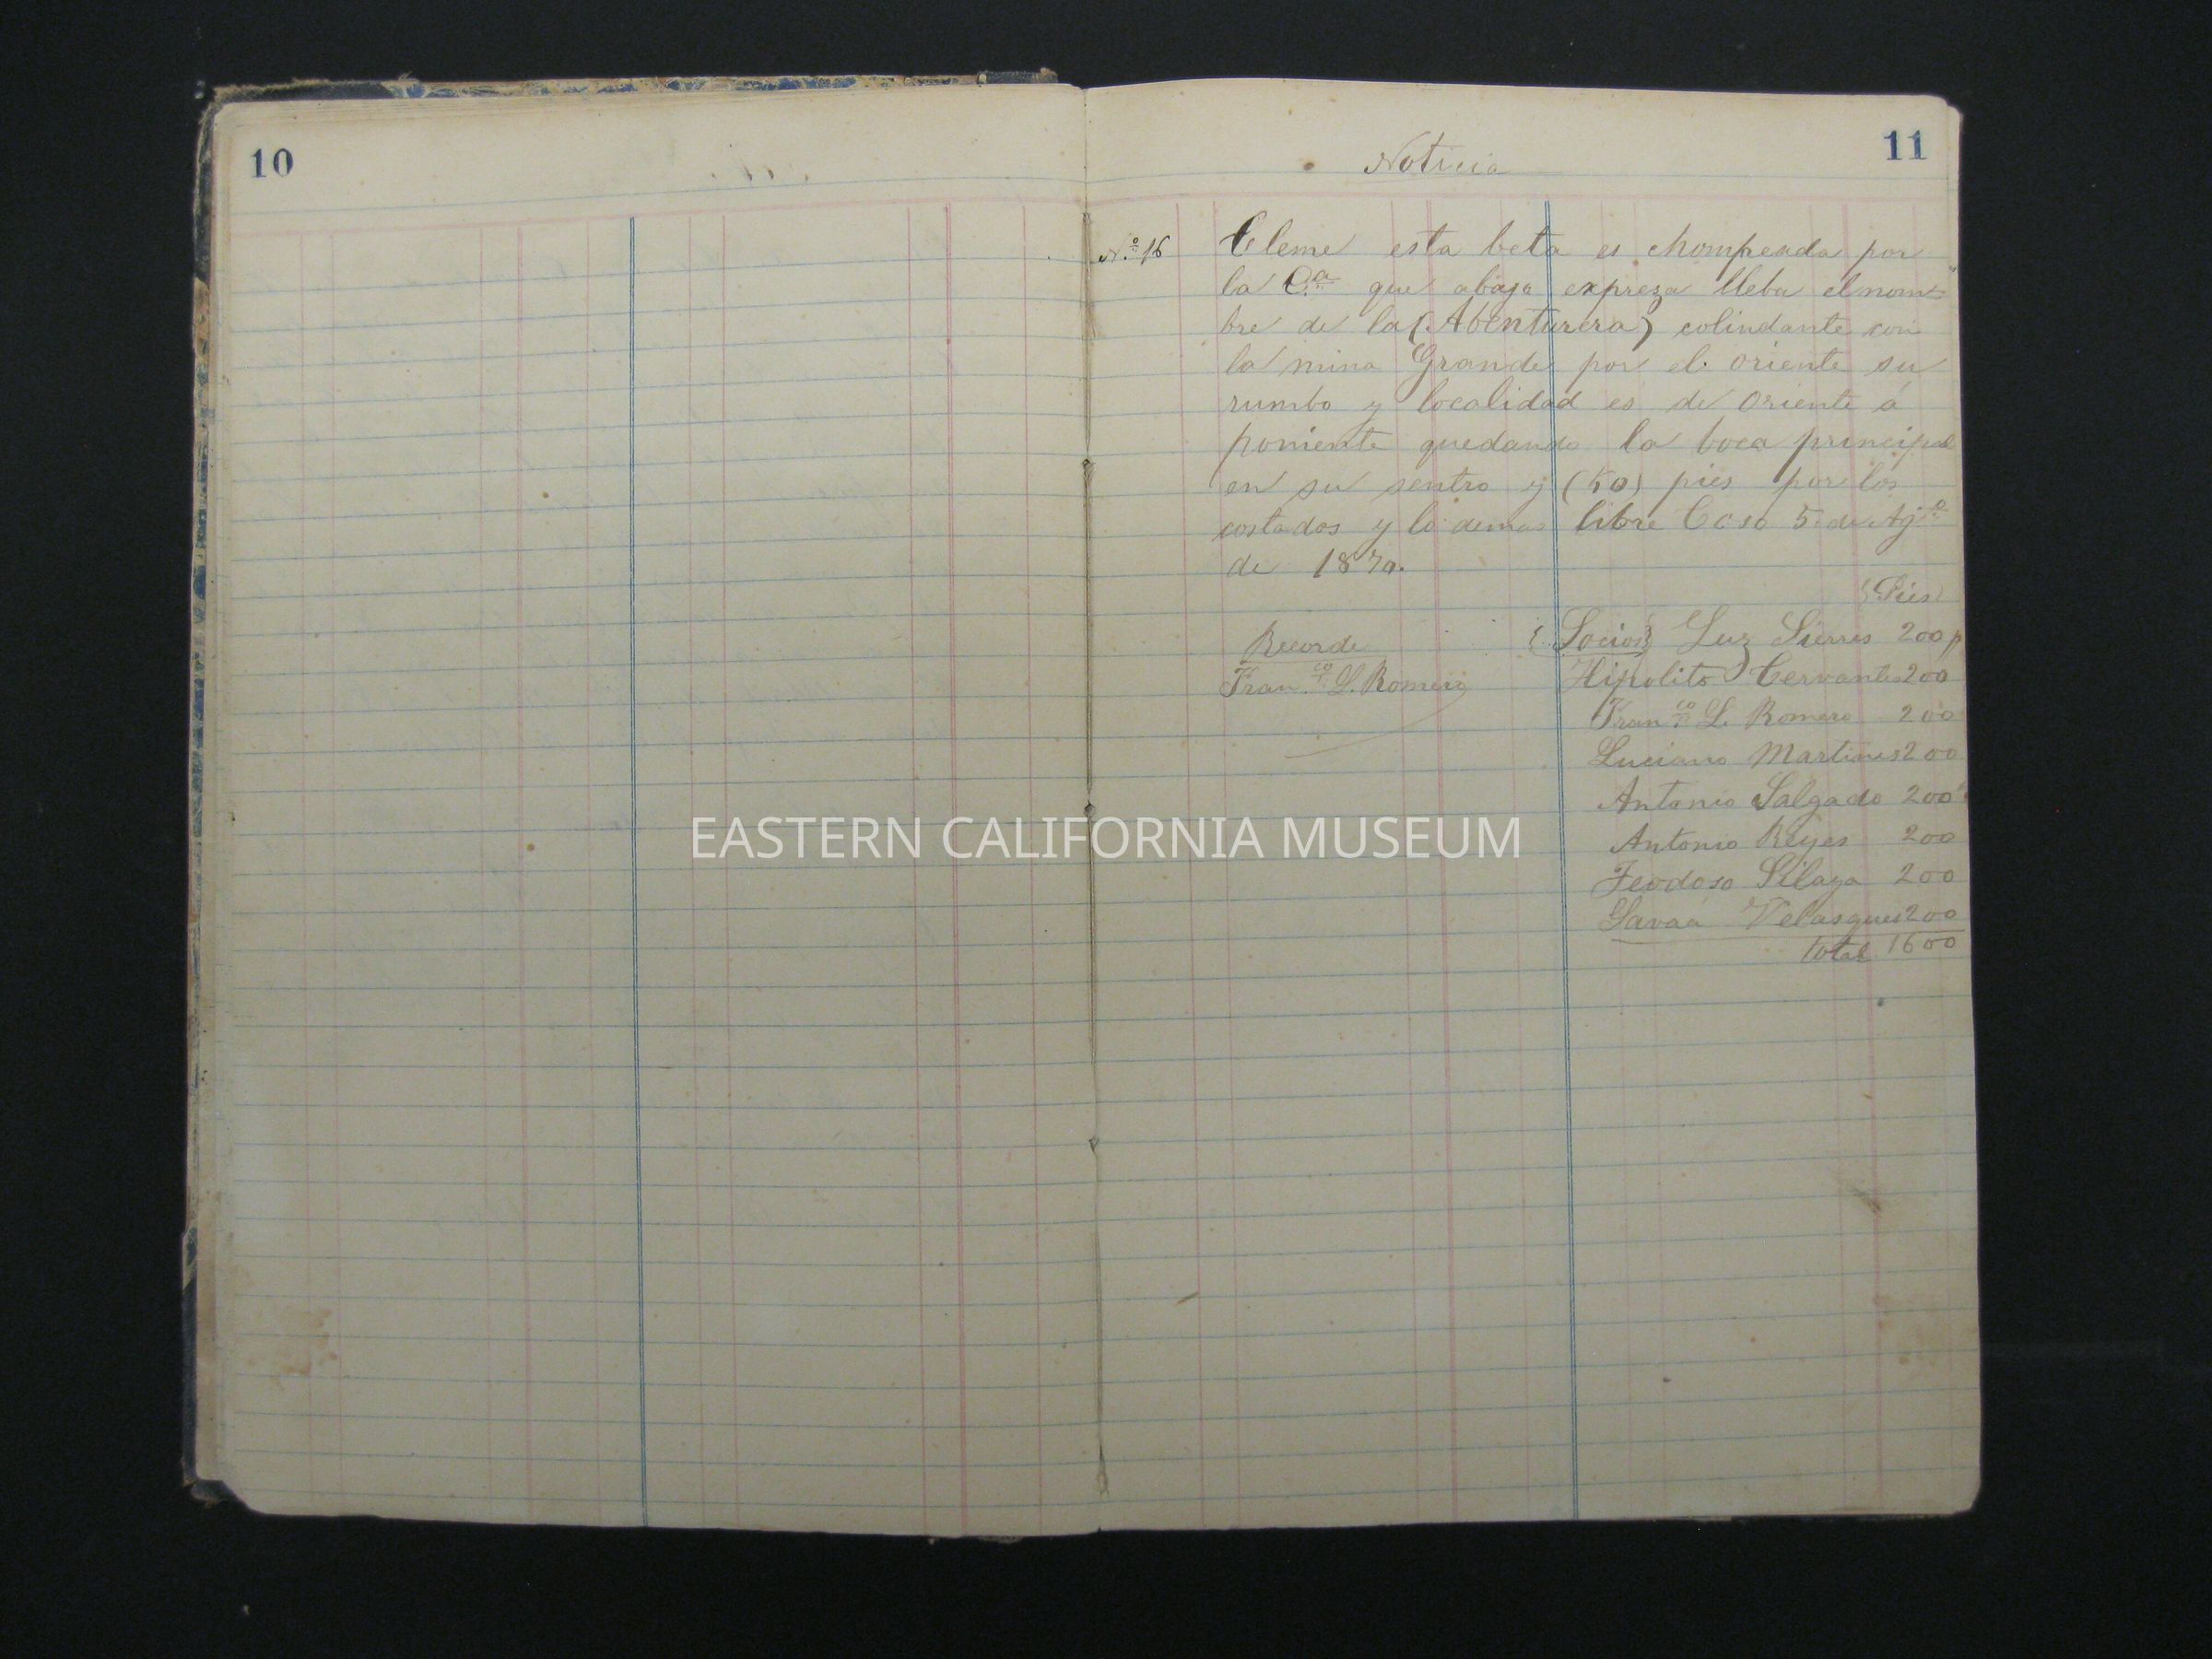 10
11
Noticia
N.o 16 Cleme esta beta es chompeada por
la C.a que abaja expreza lleba el nom-
bre de la (Abenturera) colindante con
la mina Grande por el oriente su
rumbo y localidad es de Oriente á
poniente quedando la boca principal
en su sentro y (50) pies por los
costados y lo demas libre Coso 5. de Ag.o
de 1870.
(Pies)
Recorde {Socios} Luz Sierres 200 p
Fran.co L. Romero Hipolito Cervantes 200
Fran.co L. Romero 200
Luciano Martines 200
Antonio Salgado 200
Antonio Reyes 200
Teodoso Silaza 200
Velasques 200
total 1600
EASTERN CALIFORNIA MUSEUM